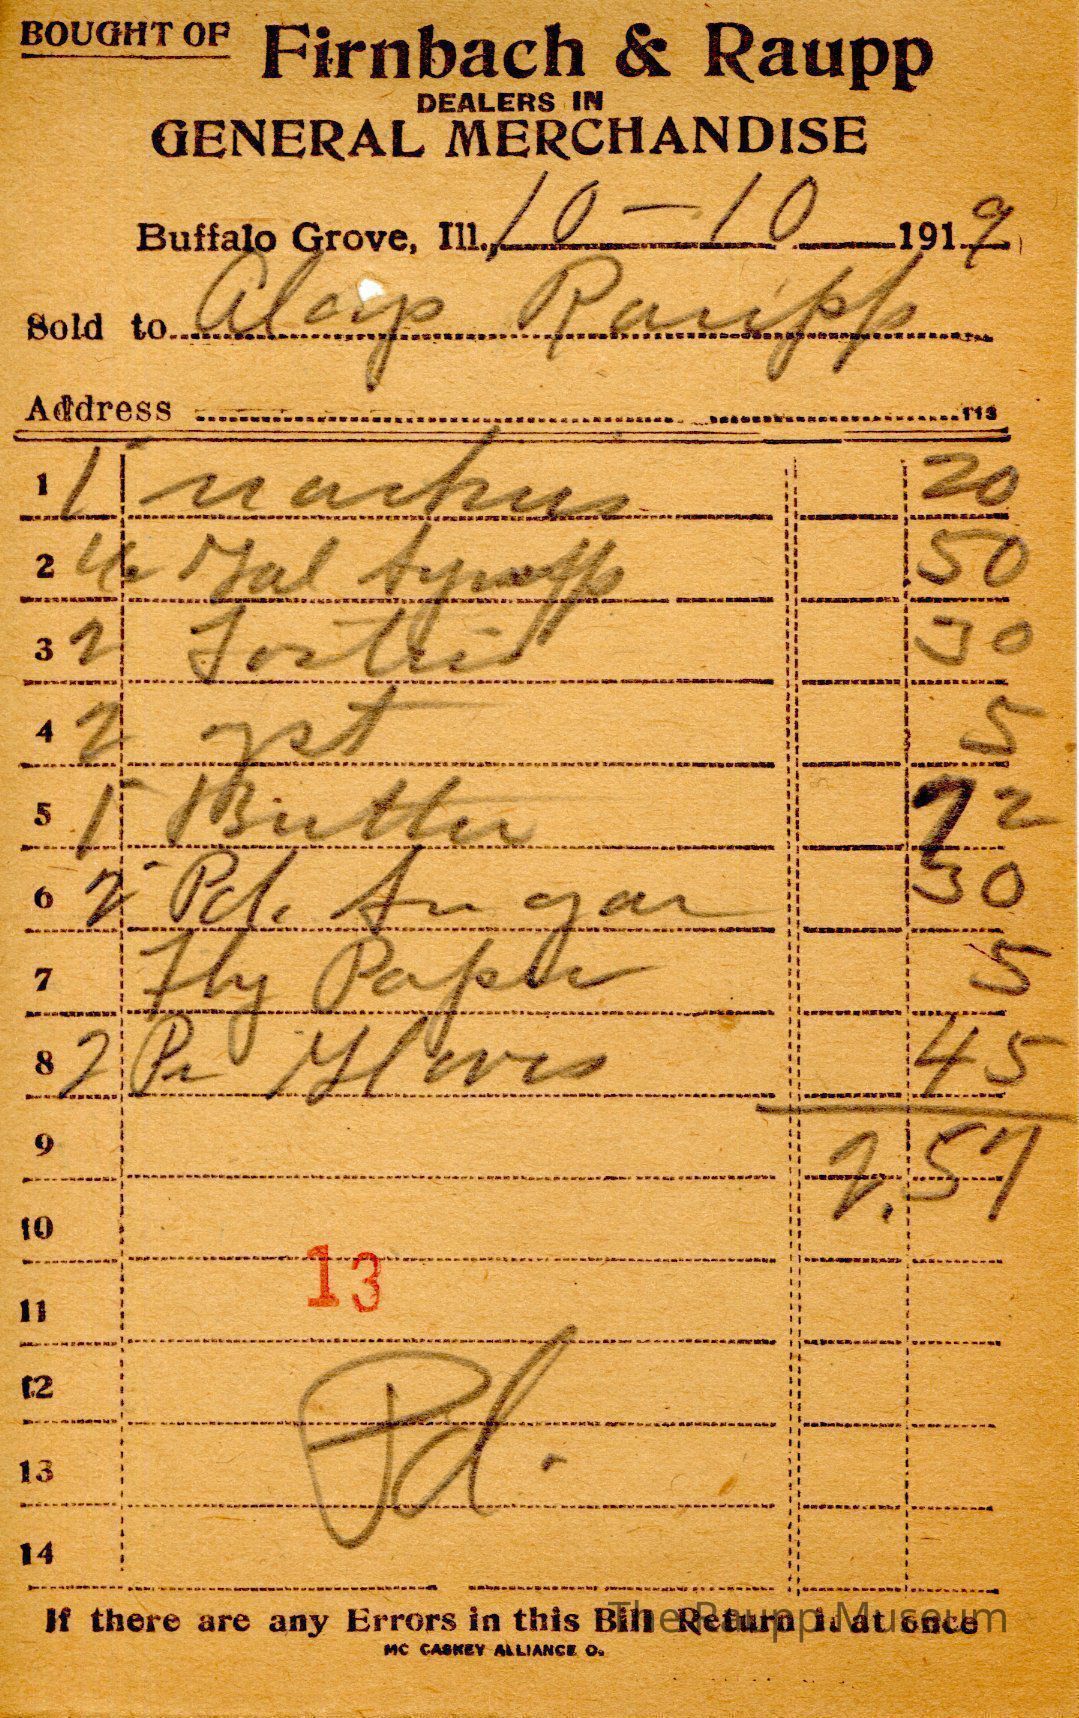 BOUGHT OF Firnbach & Raupp
DEALERS IN
GENERAL MERCHANDISE
Buffalo Grove, Ill., 10-10 1919
Sold to Aloys Raupp
Address 113
1 1 20
2 Gal Syrupp 50
3 2 30
4 2 yst 5
5 1 Butter 72
6 2 Pd. Sugar 30
7 Fly Paper 5
8 2 Pr Gloves 45
9 2.57
10
13
11
12
Pd.
13
14
If there are any Errors in this Bill Return it at once
The Raupp Museum
MC CASKEY ALLIANCE O.